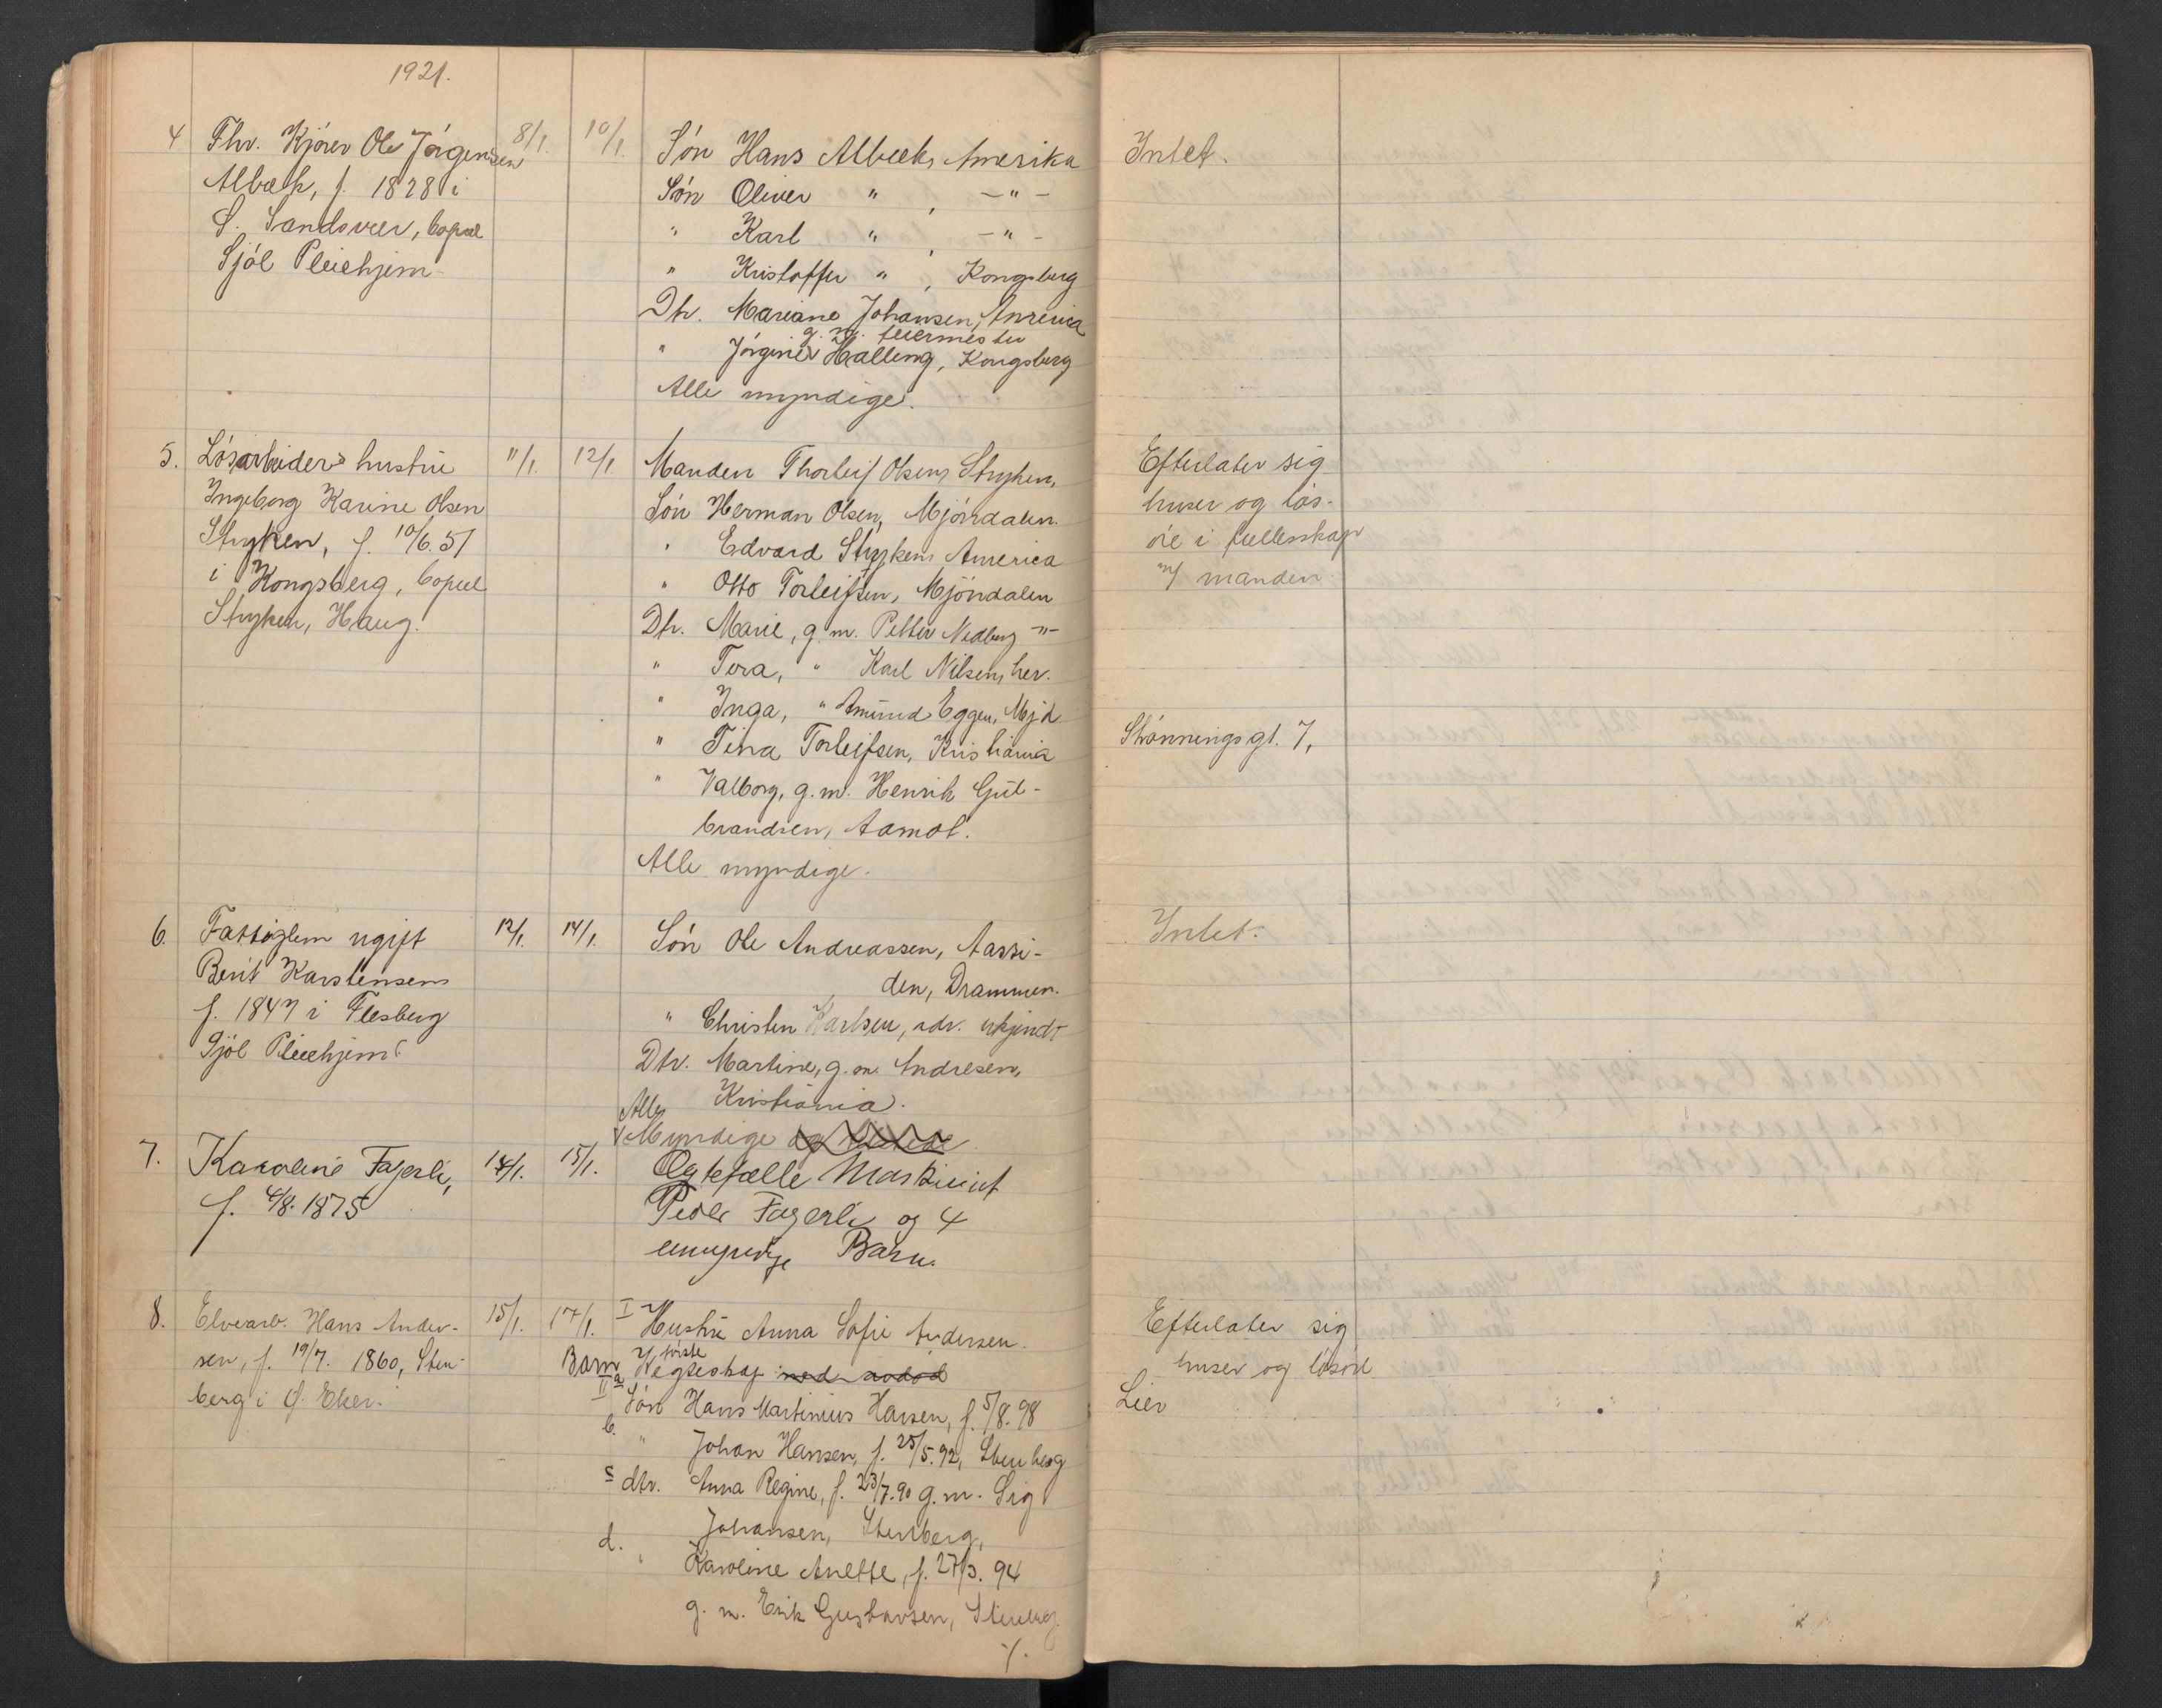 1921.
4 Fhv. Kjörer Ole Jörgensen 8/1. 10/1.
Albæk, f. 1828 i
S. Sandsvær, bopæl
Sjöl Pleiehjem
Sön Hans Albæk, Amerika
Sön Oliver " , -"-
" Karl " , -"-
" Kristoffer " , Kongsberg
Dtr. Mariane Johansen, America
g. m. feiermester
" Jörgine Halling, Kongsberg
Alle myndige.
Intet.
5. Lösarbeiders hustru 11/1. 12/1
Ingeborg Karine Olsen
Stryken, f. 10/6.51
i Kongsberg, bopæl
Stryken, Haug.
Manden Thorleif Olsen, Stryken,
Sön Herman Olsen, Mjöndalen.
" Edvard Stryken, America
" Otto Torleifsen, Mjöndalen
Dtr. Marie, g. m. Petter Nedberg -"-
" Tora, " Karl Nilsen, her.
" Inga, " Amund Eggen, Mjd
" Tina Torleifsen, Kristiania
" Valborg, g.m. Henrik Gul-
brandsen, Aamot.
Alle myndige.
Efterlater sig
huser og lös-
öre i fællesskap
m/ manden
Strönningsgt. 7,
6. Fattiglem ugift 12/1. 14/1.
Berit Karstensen
f. 1847 i Flesberg
Sjöl Pleiehjem
Sön Ole Andreassen, Aassi-
den, Drammen.
" Christen Karlsen, adr. ukjendt
Dtr. Martine, g. m. Andresen,
Kristiania.
Alle
Myndige og
Intet.
7. Karoline Fagerli, 14/1. 15/1.
f. 4/8. 1875
Ægtefælle Maskinist
Peder Fagerli og 4
umyndige Barn.
8. Elvearb. Hans Ander- 15/1. 17/1.
sen, f. 19/7. 1860, Sten-
berg i Ö. Eker.
I Hustru Anna Sofie Andersen.
Barn i förste
Ægteskap med avdöd
II a Sön Hans Martinius Hansen, f. 5/8. 98
b. " Johan Hansen, f. 25/5. 92, Stenberg
c dtr. Anna Regine, f. 23/7. 90 g. m. Sig
Johansen, Stenberg,
d. " Karoline Anette, f. 27/3. 94
g. m. Erik Gustavsen, Stenberg
Efterlater sig
huser og lösöre
Lier